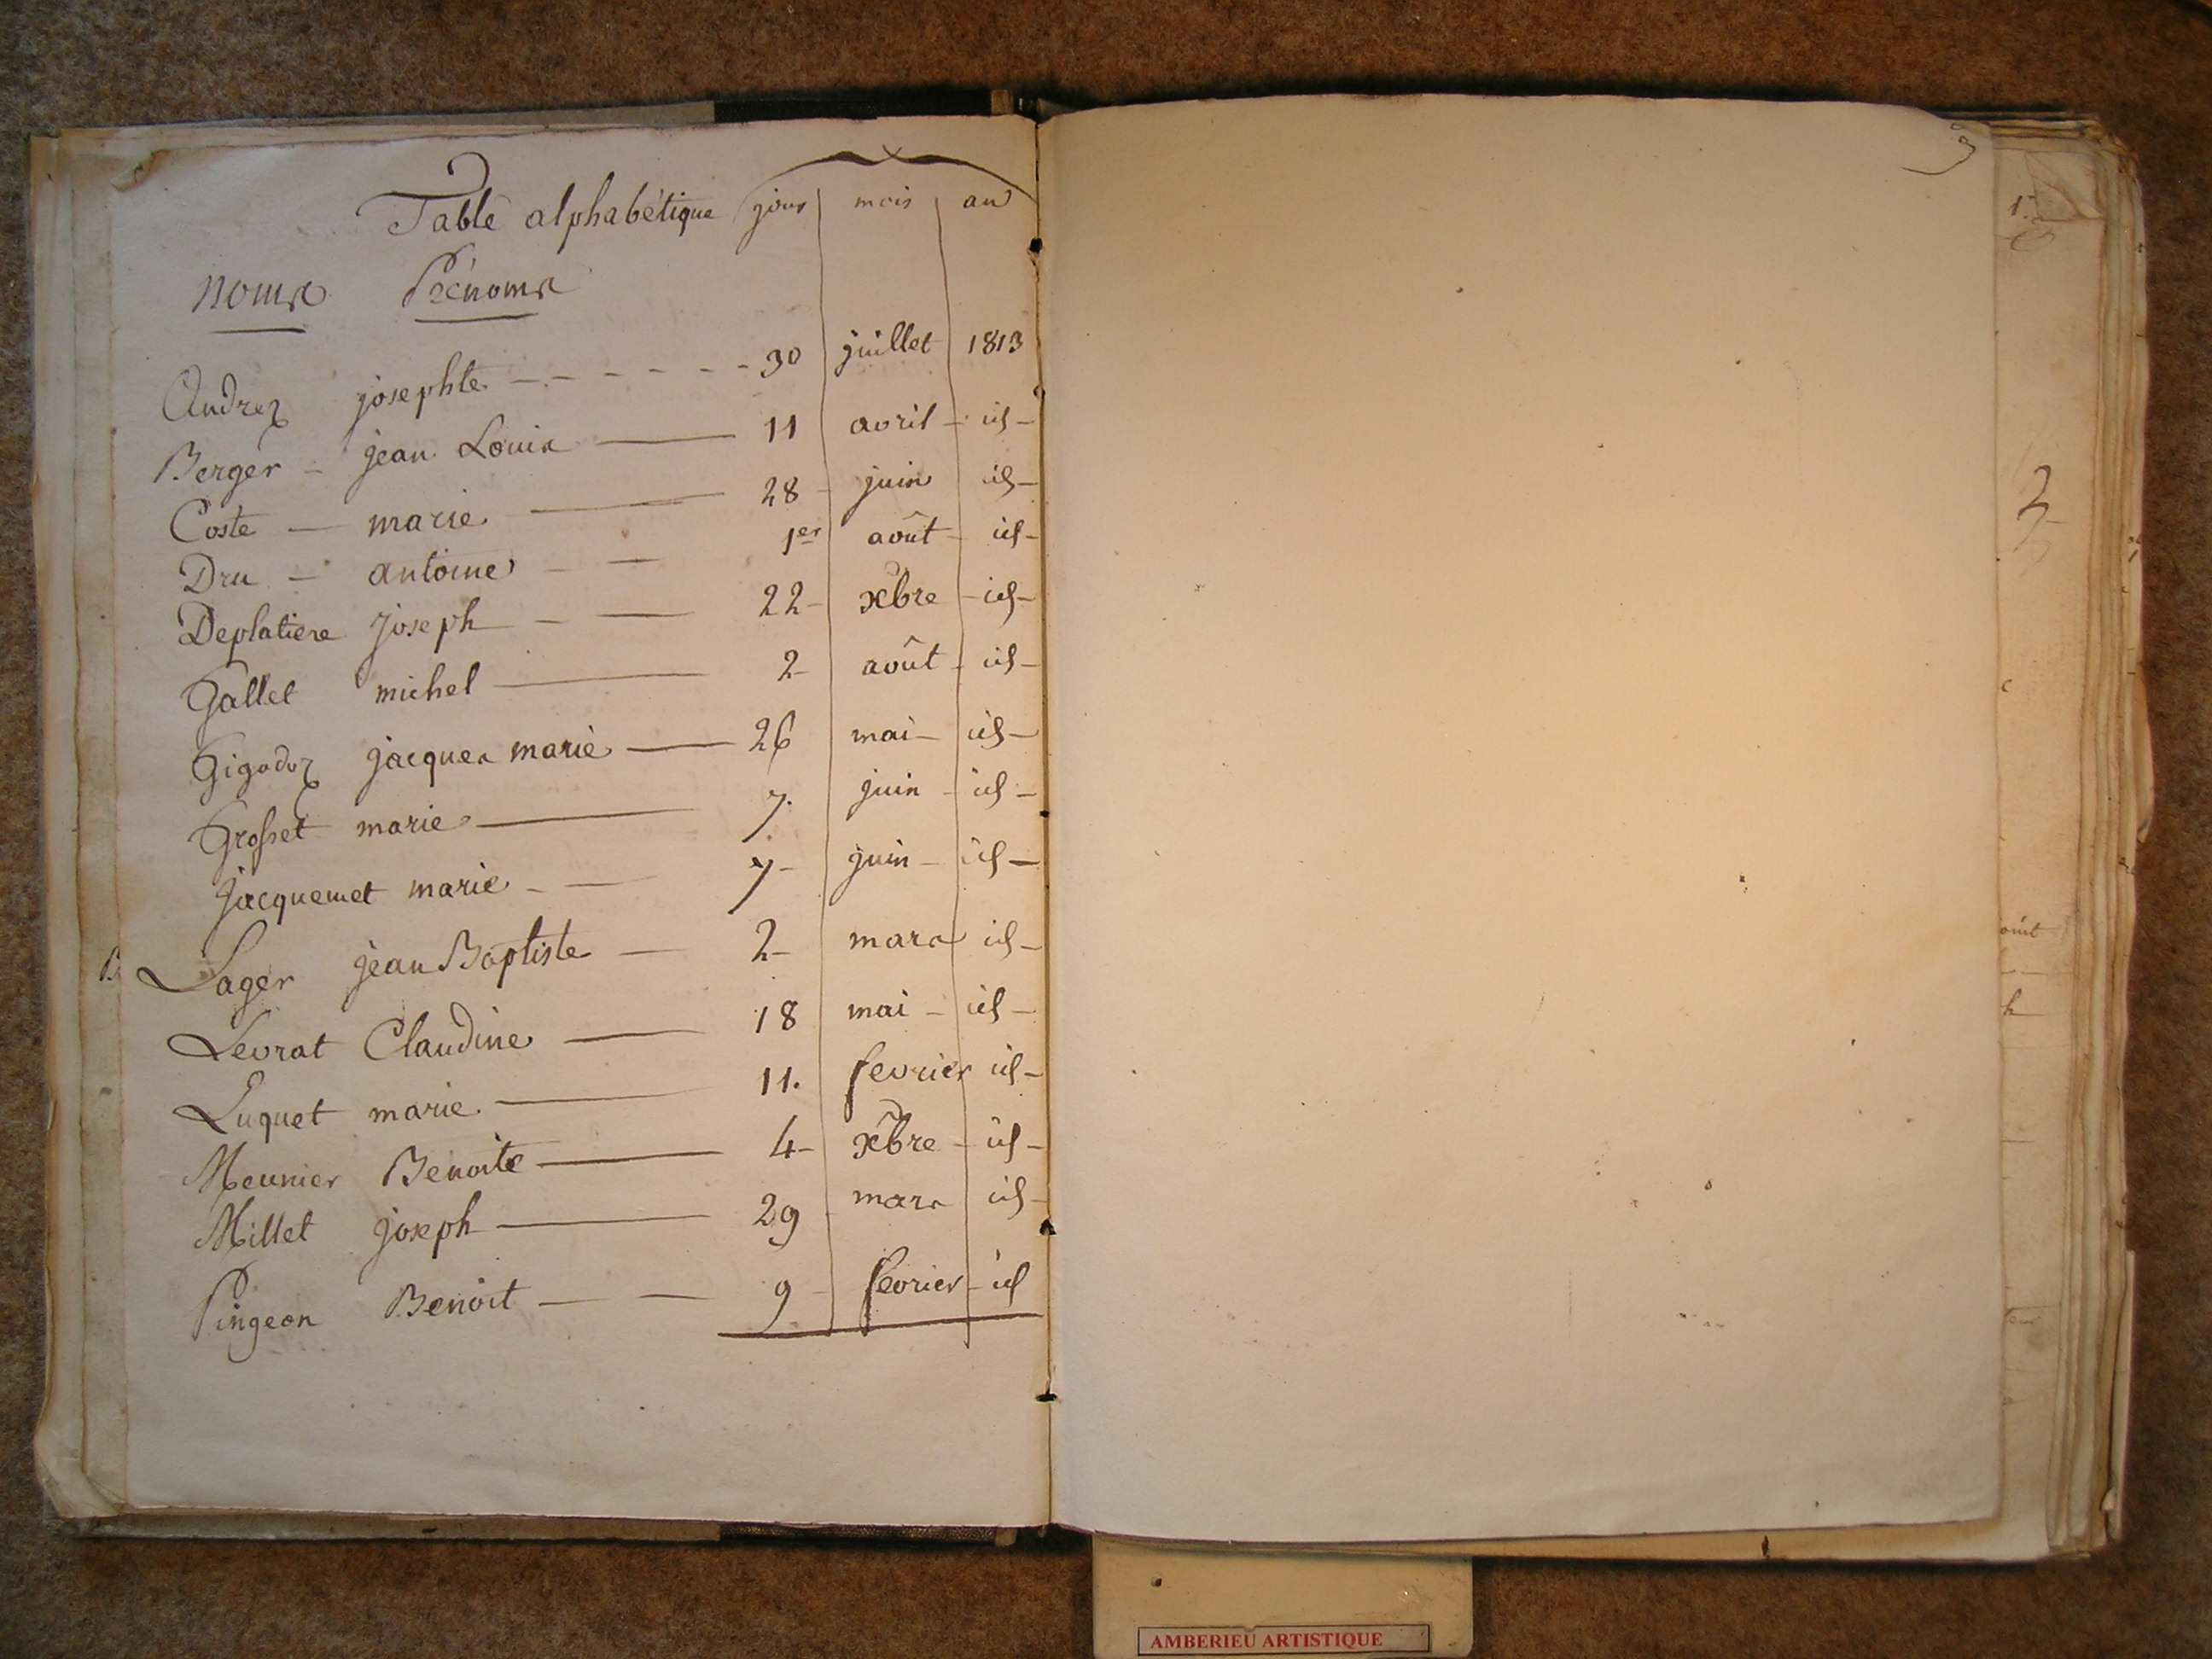 Table alphabétique jour mois an
noms Prénoms
Andrez josephte 30 juillet 1813
Berger jean Louis 11 avril id
Coste marie 28 juin id
Dru antoine 1er août id
Deplatiere joseph 22 xbre id
Gallet michel 2 août id
Gigodoz jacques marie 26 mai id
Grosset marie 7. juin id
jacquemet marie 7 juin id
Lager jean Baptiste 2 mars id
Levrat Claudine 18 mai id
Luquet marie 11. fevrier id
Meunier Benoite 4 xbre id
Millet joseph 29 mars id
Pingeon Benoit 9 fevrier id
AMBERIEU ARTISTIQUE